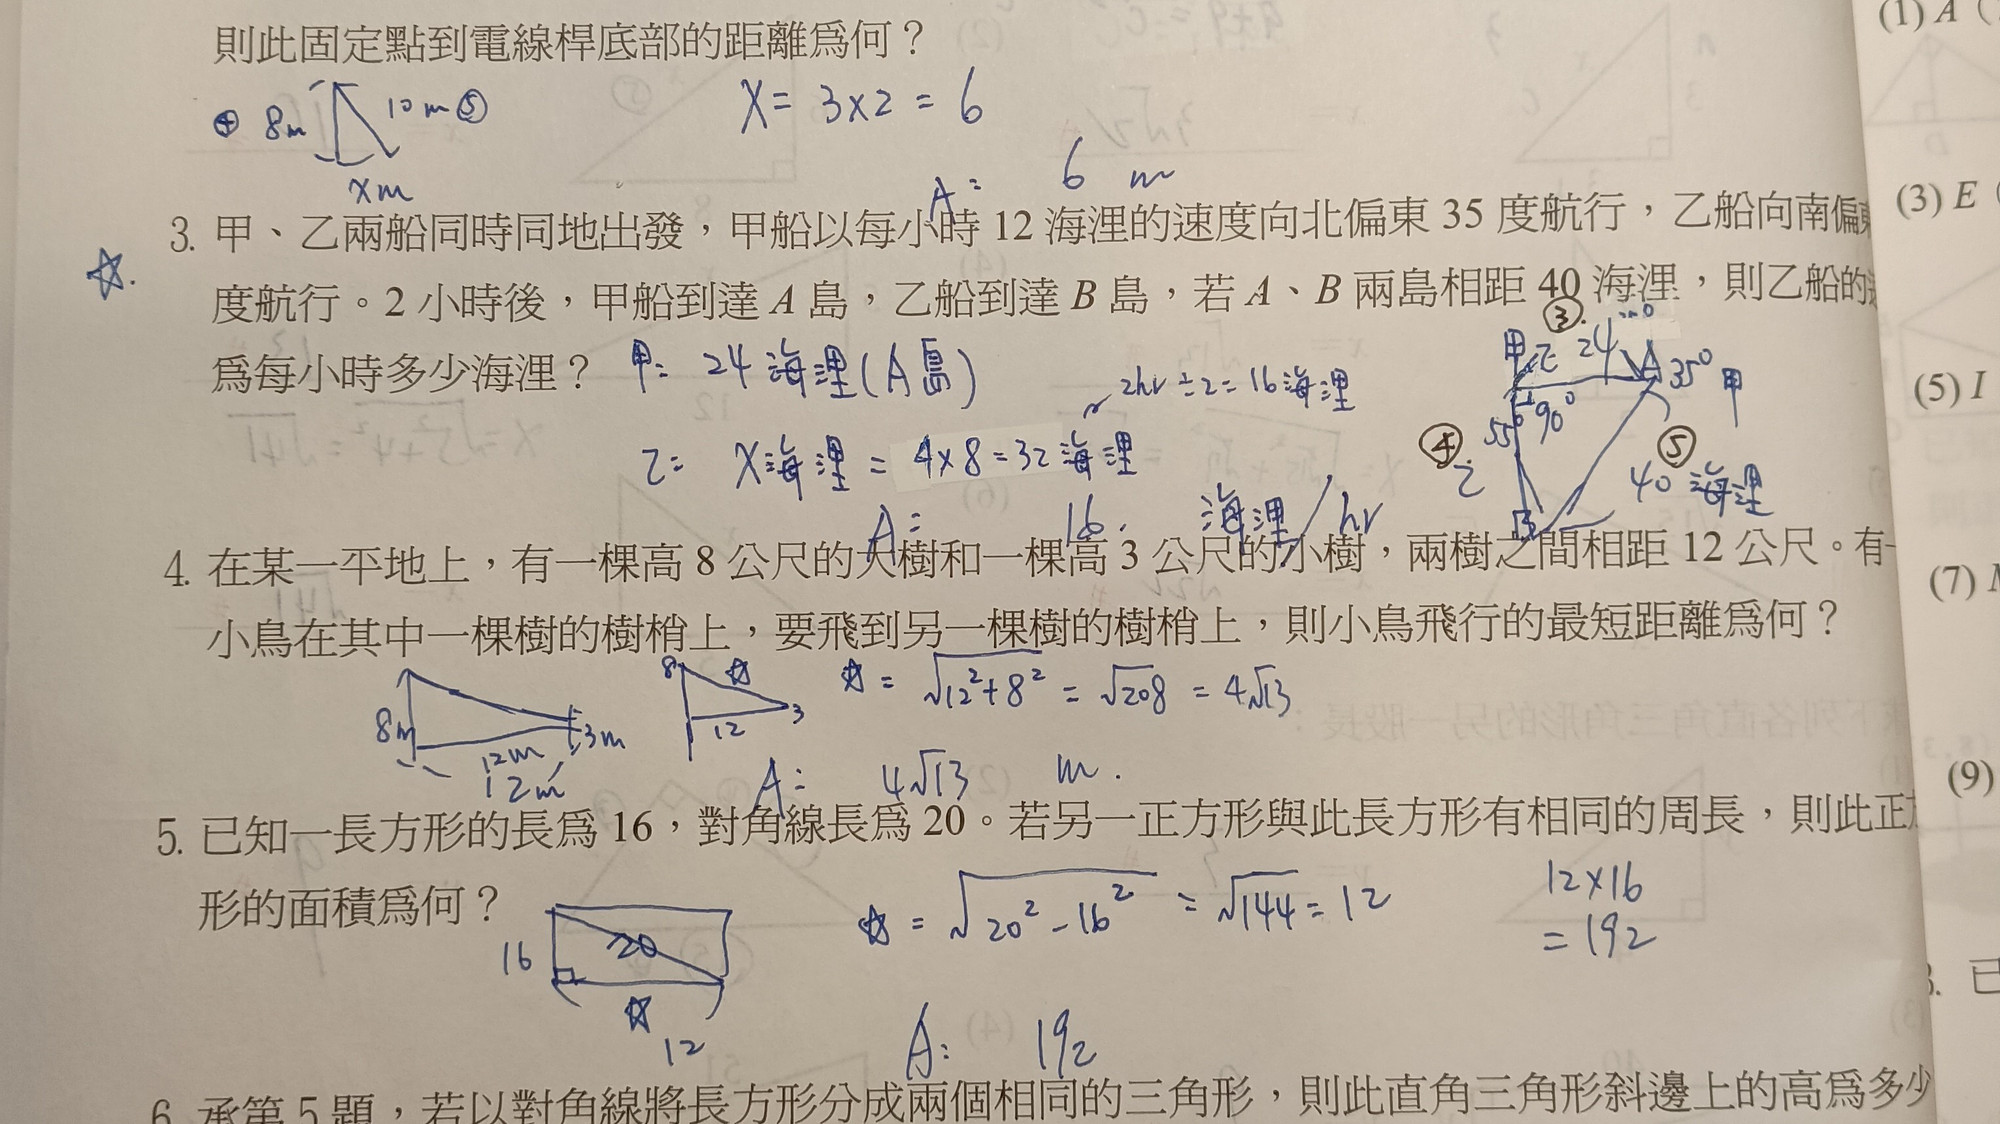 則此固定點到電線桿底部的距離爲何？
④ 8m 10m⑤
xm
X = 3×2 = 6
A: 6 m
3. 甲、乙兩船同時同地出發，甲船以每小時 12 海浬的速度向北偏東 35 度航行，乙船向南偏東
度航行。2 小時後，甲船到達 A 島，乙船到達 B 島，若 A、B 兩島相距 40 海浬，則乙船的
爲每小時多少海浬？ 甲: 24 海浬(A島)
2hr ÷2=16海浬
乙= X海浬 = 4×8=32海浬
A: 16. 海浬/hr
③. 24
甲乙 A 35° 甲
55° 90°
④ 乙 ⑤ 40 海浬
B
4. 在某一平地上，有一棵高 8 公尺的大樹和一棵高 3 公尺的小樹，兩樹之間相距 12 公尺。有一
小鳥在其中一棵樹的樹梢上，要飛到另一棵樹的樹梢上，則小鳥飛行的最短距離爲何？
8m 12m 3m
12m
8 ☆ 12 3
☆ = √12²+8² = √208 = 4√13
A: 4√13 m.
5. 已知一長方形的長爲 16，對角線長爲 20。若另一正方形與此長方形有相同的周長，則此正方
形的面積爲何？
16 20
☆
12
☆ = √20²-16² = √144 = 12
12×16
= 192
A: 192
6. 承第 5 題，若以對角線將長方形分成兩個相同的三角形，則此直角三角形斜邊上的高爲多少
(1) A (
(3) E (
(5) I
(7)
(9)
8. 已